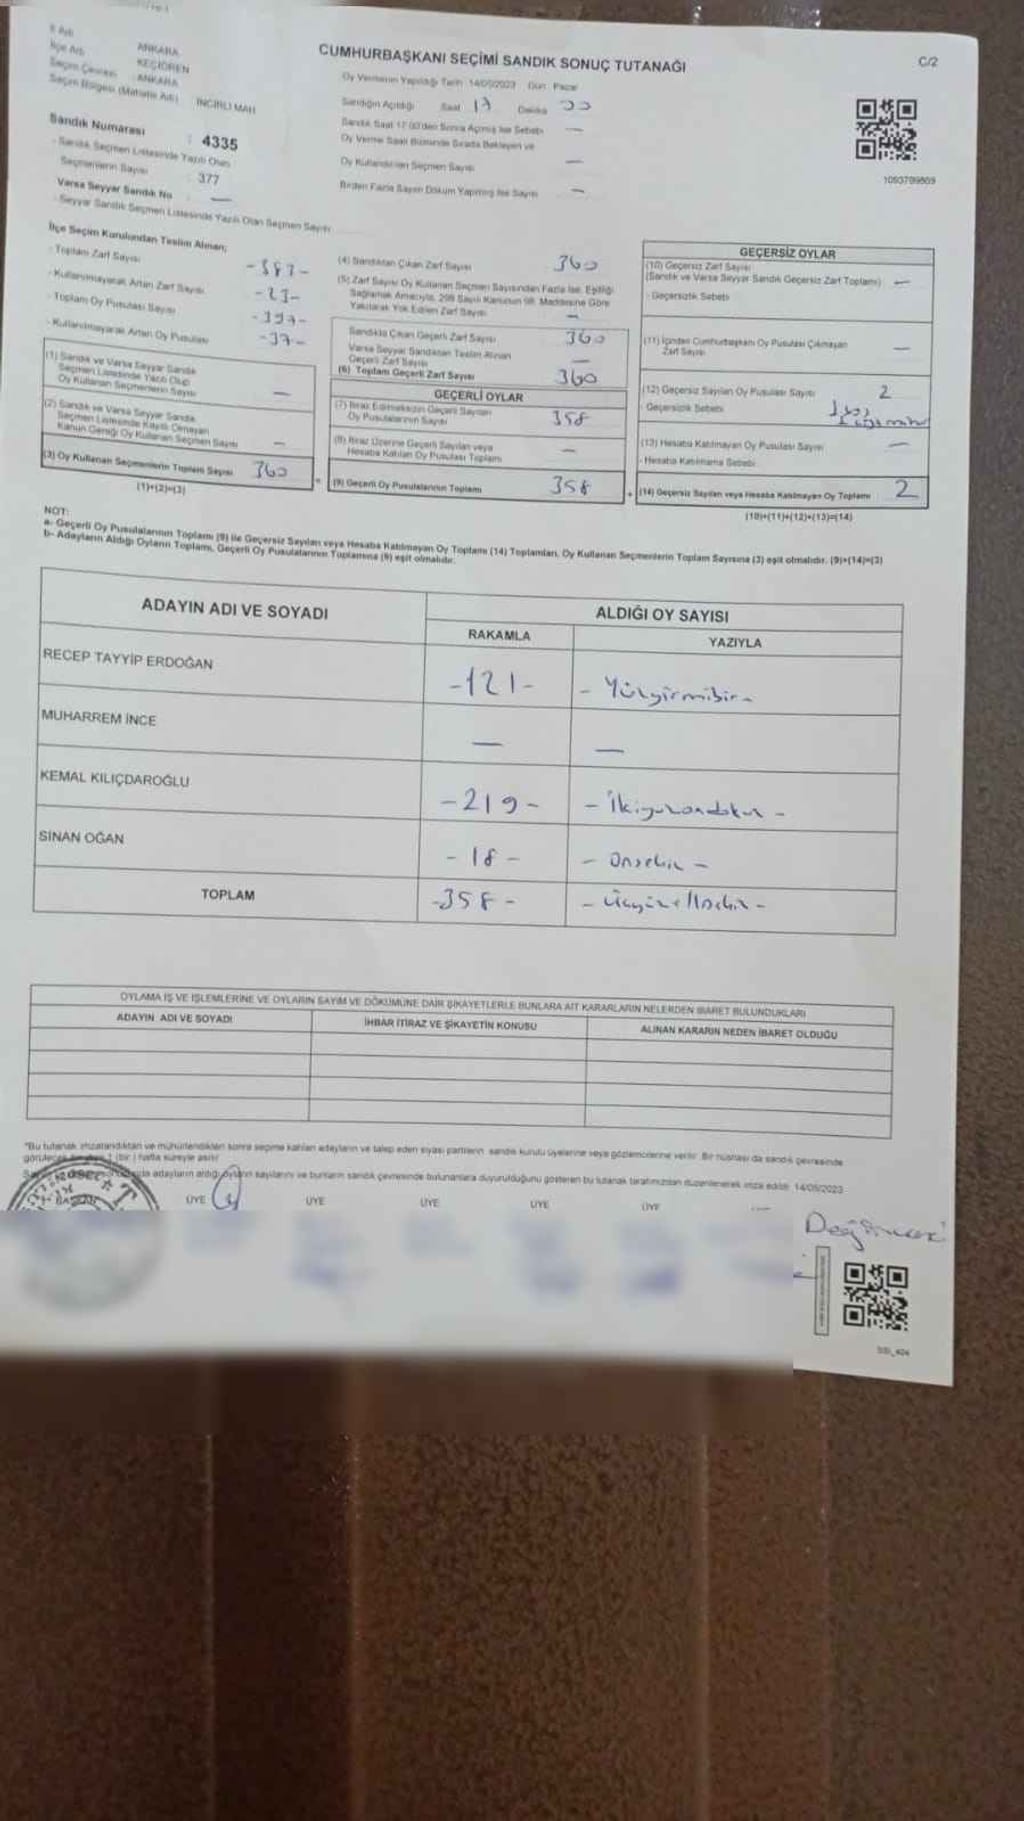 İl Adı ANKARA
İlçe Adı KEÇİÖREN
Seçim Çevresi ANKARA
Seçim Bölgesi (Mahalle Adı) İNCİRLİ MAH
Sandık Numarası : 4335
- Sandık Seçmen Listesinde Yazılı Olan
Seçmenlerin Sayısı : 377
Varsa Seyyar Sandık No : —
- Seyyar Sandık Seçmen Listesinde Yazılı Olan Seçmen Sayısı
CUMHURBAŞKANI SEÇİMİ SANDIK SONUÇ TUTANAĞI
C/2
Oy Vermenin Yapıldığı Tarih 14/05/2023 Gün Pazar
Sandığın Açıldığı Saat 17 Dakika
Sandık Saat 17.00'den Sonra Açılmış İse Sebebi —
Oy Verme Saati Bitiminde Sırada Bekleyen ve
Oy Kullandırılan Seçmen Sayısı —
Birden Fazla Sayım Döküm Yapılmış İse Sayısı —
1093799809
İlçe Seçim Kurulundan Teslim Alınan;
- Toplam Zarf Sayısı
- Kullanılmayarak Artan Zarf Sayısı -23-
- Toplam Oy Pusulası Sayısı -397-
- Kullanılmayarak Artan Oy Pusulası -37-
(1) Sandık ve Varsa Seyyar Sandık
Seçmen Listesinde Yazılı Olup
Oy Kullanan Seçmenlerin Sayısı —
(2) Sandık ve Varsa Seyyar Sandık
Seçmen Listesinde Kayıtlı Olmayan
Kanun Gereği Oy Kullanan Seçmen Sayısı —
(3) Oy Kullanan Seçmenlerin Toplam Sayısı 360
(1)+(2)=(3)
(4) Sandıktan Çıkan Zarf Sayısı 360
(5) Zarf Sayısı Oy Kullanan Seçmen Sayısından Fazla İse, Eşitliği
Sağlamak Amacıyla, 298 Sayılı Kanunun 98. Maddesine Göre
Yakılarak Yok Edilen Zarf Sayısı —
Sandıkta Çıkan Geçerli Zarf Sayısı 360
Varsa Seyyar Sandıktan Teslim Alınan
Geçerli Zarf Sayısı —
(6) Toplam Geçerli Zarf Sayısı 360
GEÇERLİ OYLAR
(7) İtiraz Edilmeksizin Geçerli Sayılan
Oy Pusulalarının Sayısı 358
(8) İtiraz Üzerine Geçerli Sayılan veya
Hesaba Katılan Oy Pusulası Toplamı —
(9) Geçerli Oy Pusulalarının Toplamı 358
GEÇERSİZ OYLAR
(10) Geçersiz Zarf Sayısı
(Sandık ve Varsa Seyyar Sandık Geçersiz Zarf Toplamı) —
- Geçersizlik Sebebi
(11) İçinden Cumhurbaşkanı Oy Pusulası Çıkmayan
Zarf Sayısı —
(12) Geçersiz Sayılan Oy Pusulası Sayısı 2
- Geçersizlik Sebebi
(13) Hesaba Katılmayan Oy Pusulası Sayısı —
- Hesaba Katılmama Sebebi
(14) Geçersiz Sayılan veya Hesaba Katılmayan Oy Toplamı 2
(10)+(11)+(12)+(13)=(14)
NOT:
a- Geçerli Oy Pusulalarının Toplamı (9) ile Geçersiz Sayılan veya Hesaba Katılmayan Oy Toplamı (14) Toplamları, Oy Kullanan Seçmenlerin Toplam Sayısına (3) eşit olmalıdır. (9)+(14)=(3)
b- Adayların Aldığı Oyların Toplamı, Geçerli Oy Pusulalarının Toplamına (9) eşit olmalıdır.
ADAYIN ADI VE SOYADI ALDIĞI OY SAYISI
RAKAMLA YAZIYLA
RECEP TAYYİP ERDOĞAN -121- - Yüzyirmibir -
MUHARREM İNCE — —
KEMAL KILIÇDAROĞLU -219- - İkiyüzondokuz -
SİNAN OĞAN -18- - Onsekiz -
TOPLAM -358- - Üçyüzellisekiz -
OYLAMA İŞ VE İŞLEMLERİNE VE OYLARIN SAYIM VE DÖKÜMÜNE DAİR ŞİKAYETLERLE BUNLARA AİT KARARLARIN NELERDEN İBARET BULUNDUKLARI
ADAYIN ADI VE SOYADI İHBAR İTİRAZ VE ŞİKAYETİN KONUSU ALINAN KARARIN NEDEN İBARET OLDUĞU
*Bu tutanak imzalandıktan ve mühürlendikten sonra seçime katılan adayların ve talep eden siyasi partilerin sandık kurulu üyelerine veya gözlemcilerine verilir. Bir nüshası da sandık çevresinde
görülecek 1 (bir) hafta süreyle asılır.
adayların aldığı oyların sayılarını ve bunların sandık çevresinde bulunanlara duyurulduğunu gösteren bu tutanak tarafımızdan düzenlenerek imza edildi. 14/05/2023
ÜYE ÜYE ÜYE ÜYE ÜYE